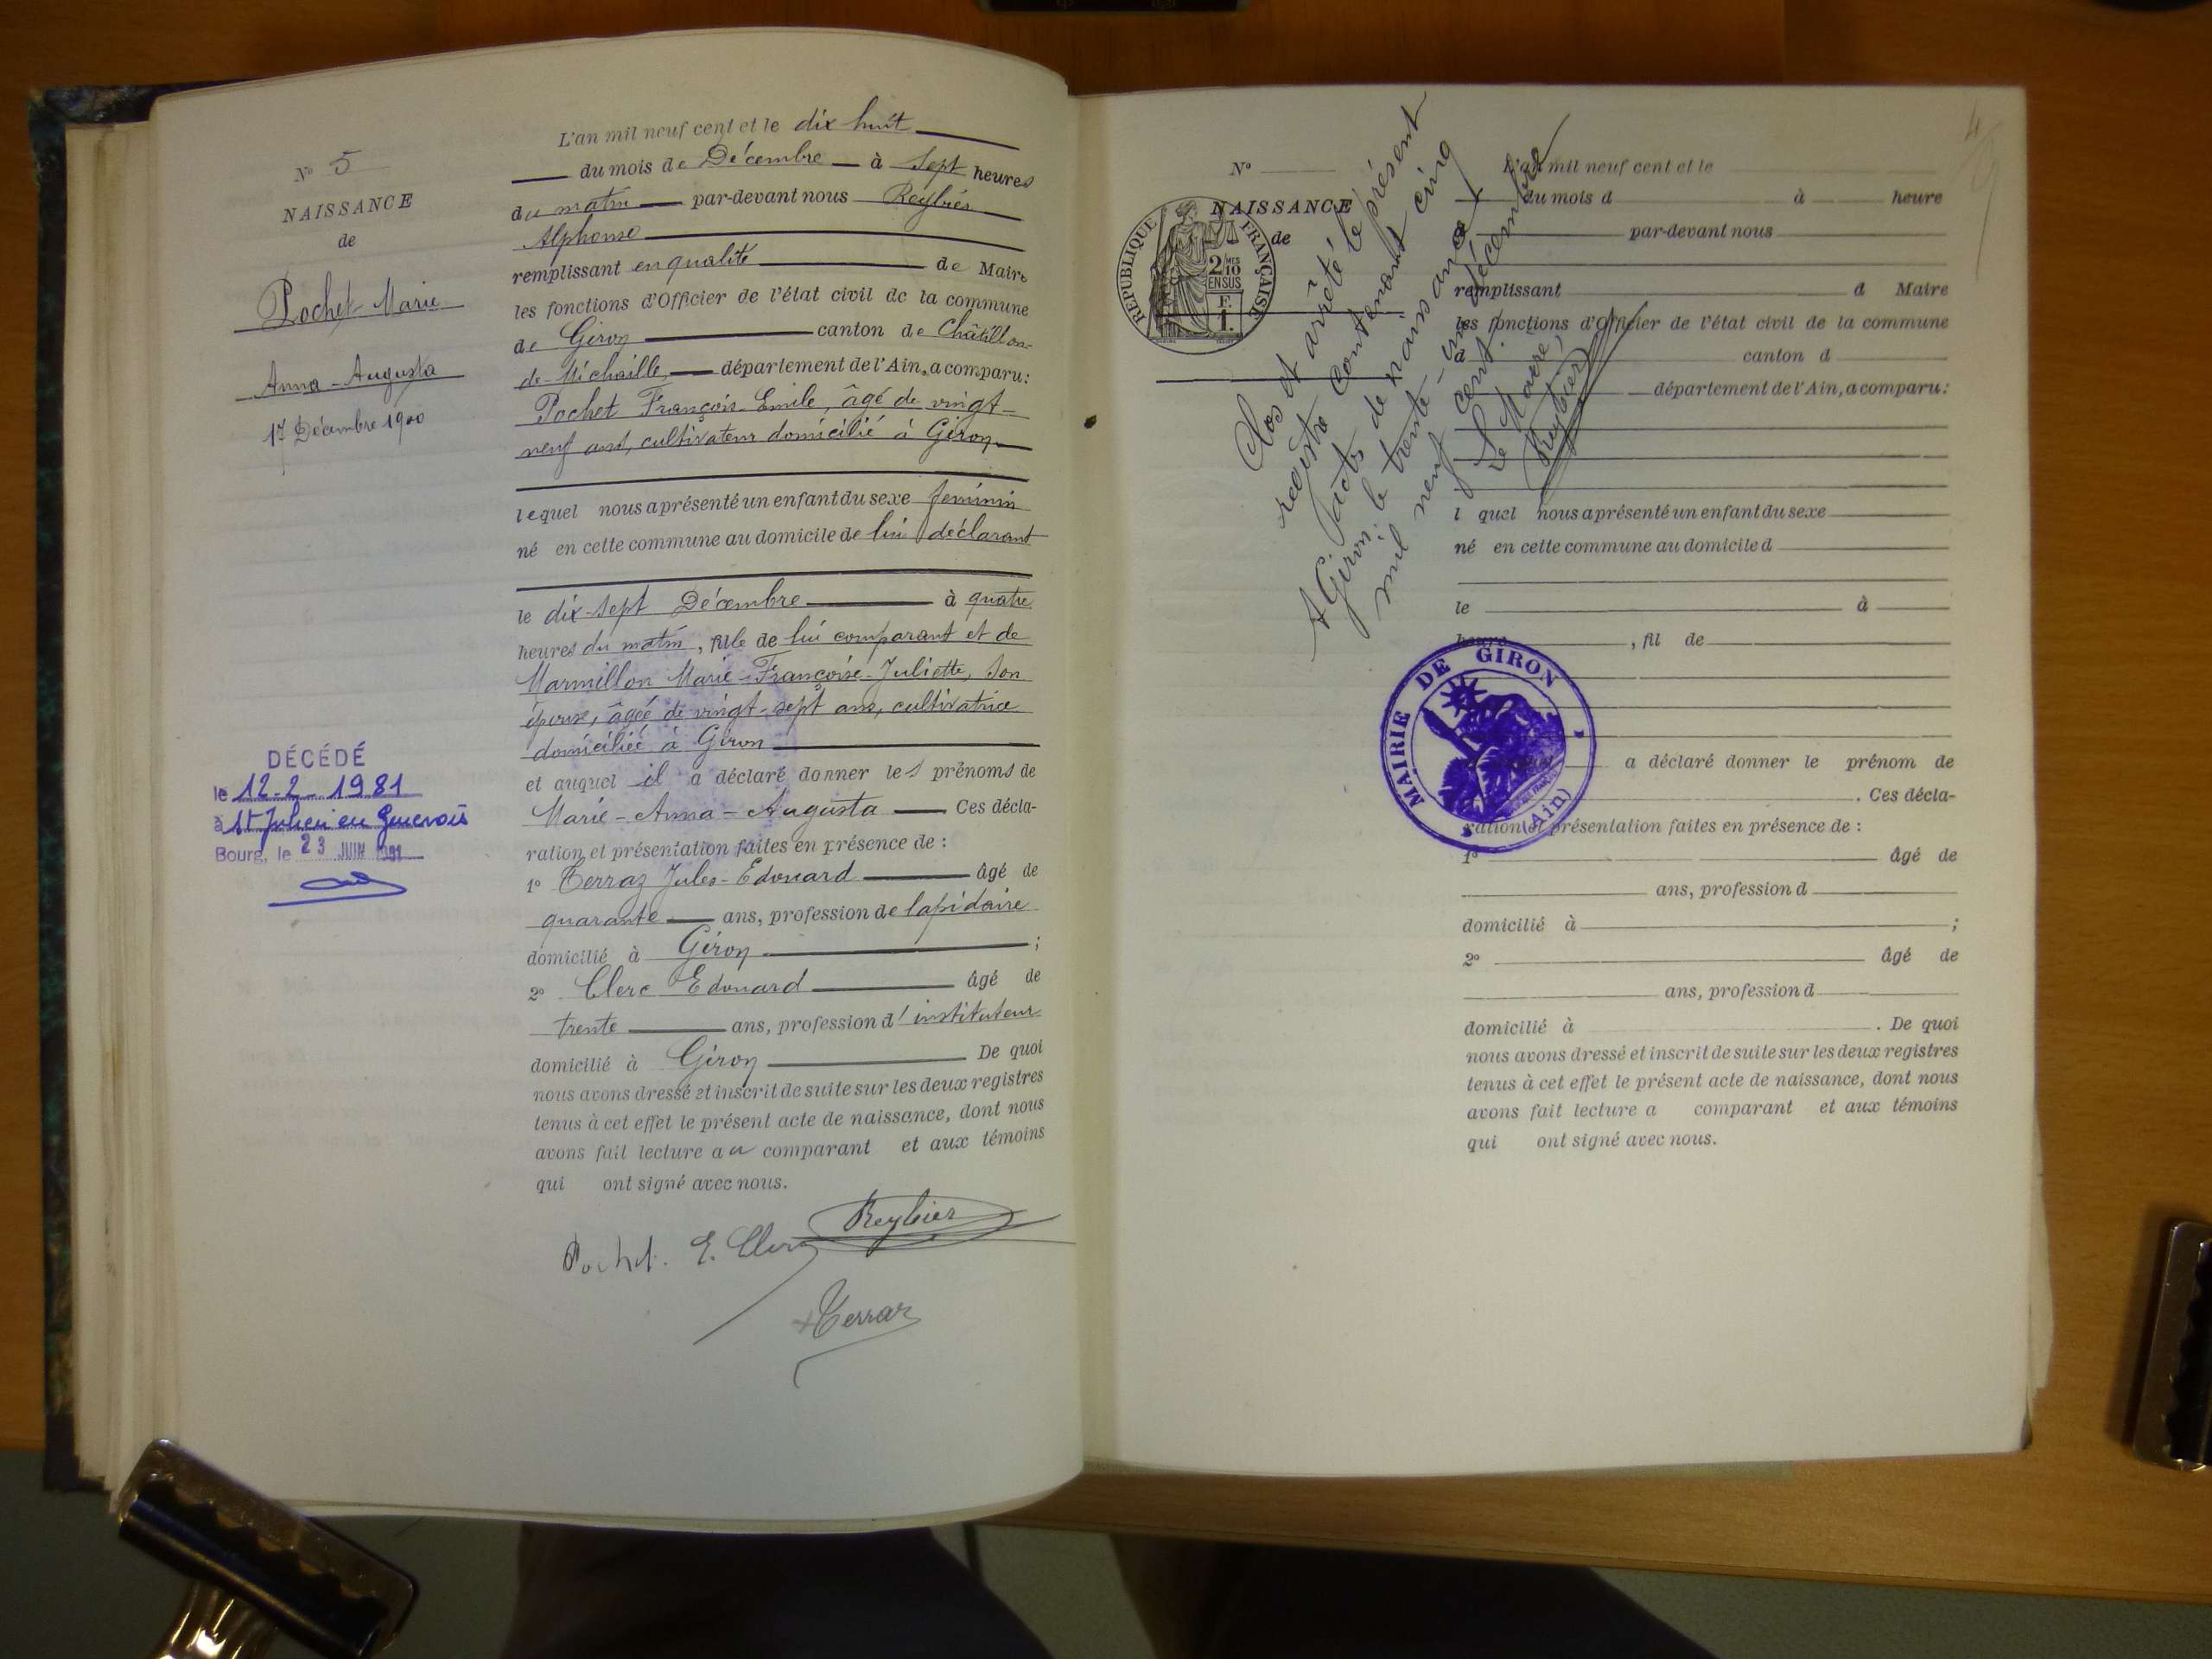 N° 5
NAISSANCE
de
Pochet Marie
Anna-Augusta
17 Décembre 1900
DÉCÉDÉ
le 12-2-1981
à St Julien en Genevois
Bourg, le 23 JUIN 1981
L'an mil neuf cent et le dix huit
du mois de Décembre à sept heures
du matin par-devant nous Reybier
Alphonse
remplissant en qualité de Maire
les fonctions d'Officier de l'état civil de la commune
de Giron canton de Châtillon-
de-Michaille, département de l'Ain, a comparu:
Pochet François-Emile, âgé de vingt-
neuf ans, cultivateur domicilié à Giron
lequel nous a présenté un enfant du sexe féminin
né en cette commune au domicile de lui déclarant
le dix-sept Décembre à quatre
heures du matin, fille de lui comparant et de
Marmillon Marie-Françoise-Juliette, son
épouse, âgée de vingt-sept ans, cultivatrice
domiciliée à Giron
et auquel il a déclaré donner les prénoms de
Marie-Anna-Augusta Ces décla-
ration et présentation faites en présence de :
1° Terraz Jules-Edouard âgé de
quarante ans, profession de lapidaire
domicilié à Giron ;
2° Clerc Edouard âgé de
trente ans, profession d'instituteur
domicilié à Giron De quoi
nous avons dressé et inscrit de suite sur les deux registres
tenus à cet effet le présent acte de naissance, dont nous
avons fait lecture au comparant et aux témoins
qui ont signé avec nous.
Pochet. E. Clerc Reybier
Terraz
4
N°
NAISSANCE
de
RÉPUBLIQUE FRANÇAISE
2/10 MES
EN SUS
F.
1.
Clos et arrêté le présent
registre contenant cinq
actes de naissance
A Giron, le trente-un décembre
mil neuf cent.
Le Maire,
Reybier
L'an mil neuf cent et le
du mois d à heure
par-devant nous
remplissant d Maire
les fonctions d'Officier de l'état civil de la commune
d canton d
département de l'Ain, a comparu:
l quel nous a présenté un enfant du sexe
né en cette commune au domicile d
le à
heure , fil de
MAIRIE DE GIRON
(Ain)
a déclaré donner le prénom de
. Ces décla-
ration et présentation faites en présence de :
1° âgé de
ans, profession d
domicilié à ;
2° âgé de
ans, profession d
domicilié à . De quoi
nous avons dressé et inscrit de suite sur les deux registres
tenus à cet effet le présent acte de naissance, dont nous
avons fait lecture a comparant et aux témoins
qui ont signé avec nous.